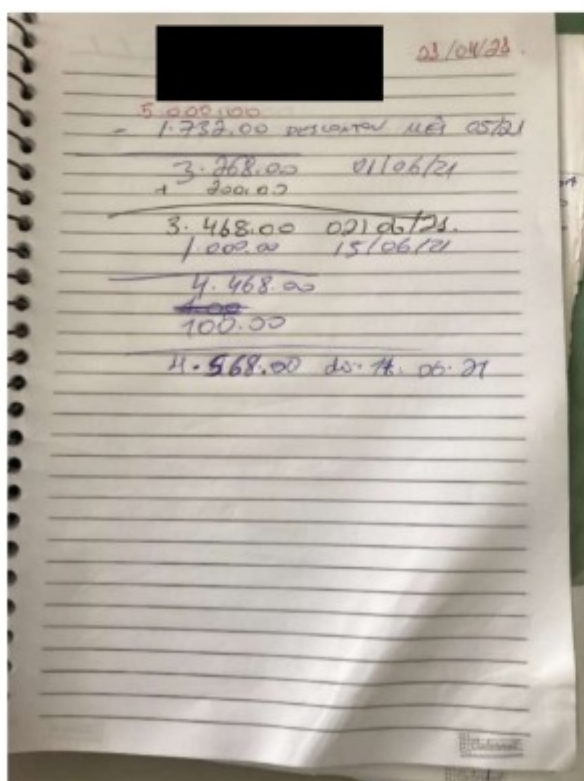 23/04/21.
5.000.00
- 1.732.00 DESCONTOU MÊS 05/21
3.268.00 01/06/21
+ 200.00
3.468.00 02/06/21.
1.000.00 15/06/21
4.468.00
100.00
4.568.00 do. 06.21